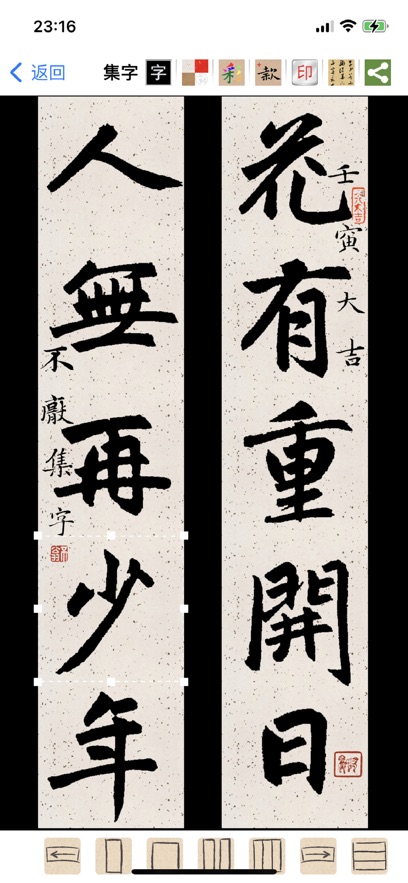 23:16
返回
集字
字
彩
款
印
花有重開日
壬寅大吉
人無再少年
不厭集字